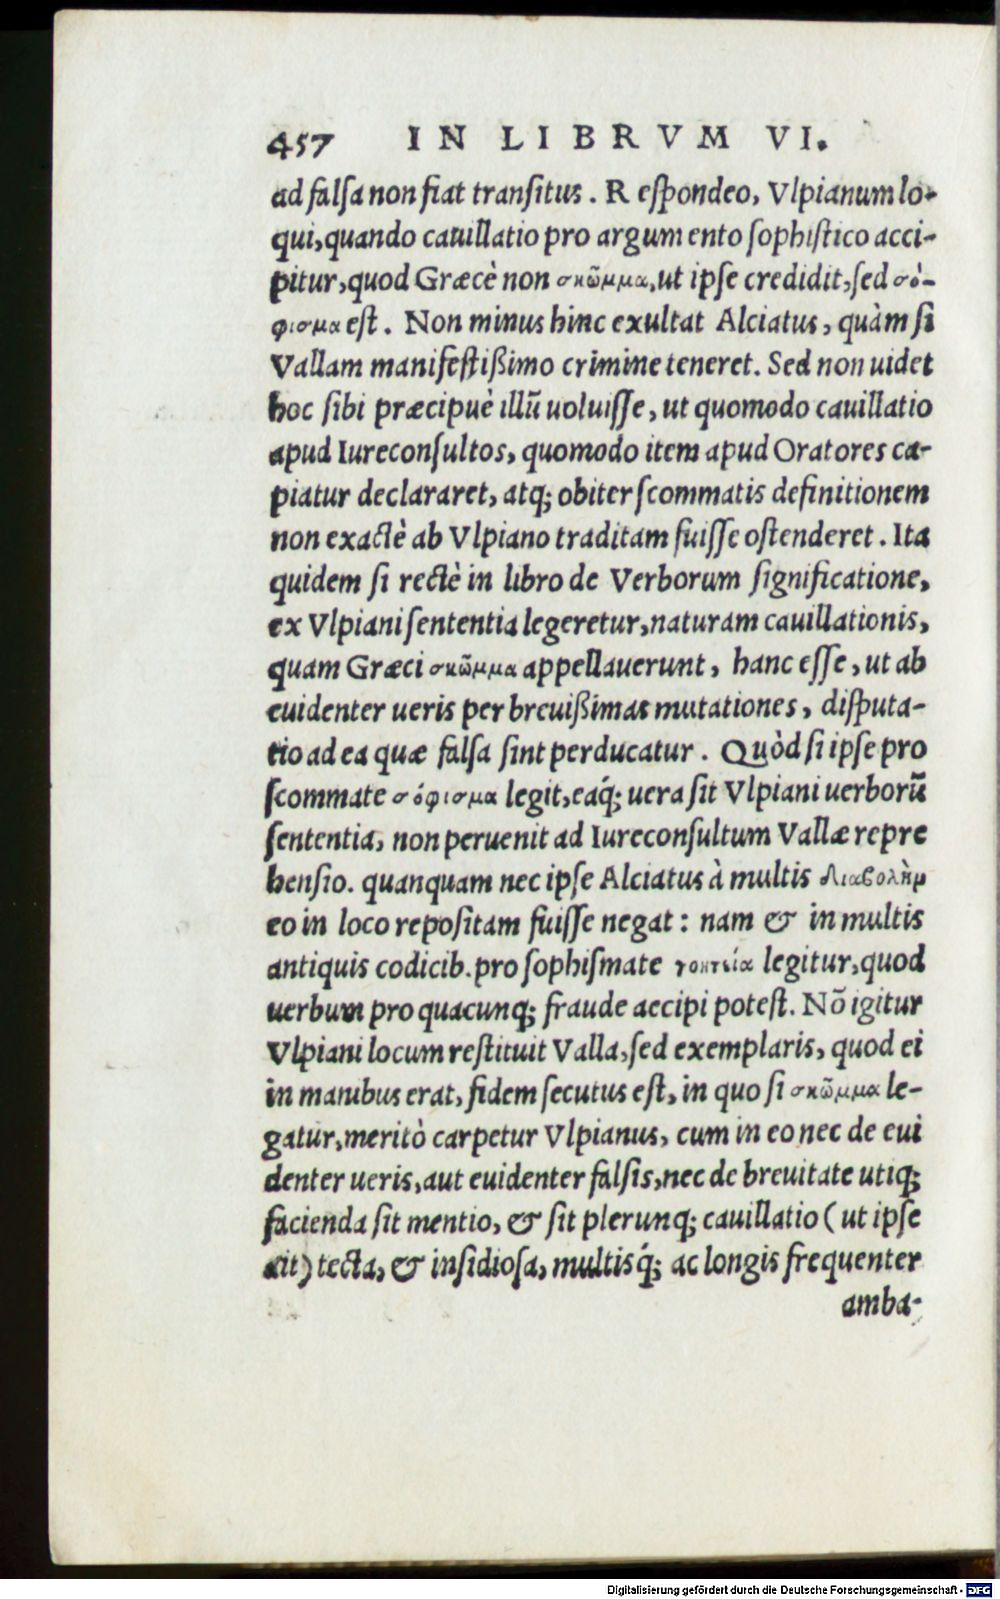 457 IN LIBRVM VI.
ad falsa non fiat transitus. Respondeo, Vlpianum lo-
qui, quando cauillatio pro argumento sophistico acci-
pitur, quod Græcè non σκῶμμα, ut ipse credidit, sed σό-
φισμα est. Non minus hinc exultat Alciatus, quàm si
Vallam manifestißimo crimine teneret. Sed non uidet
hoc sibi præcipuè illũ uoluisse, ut quomodo cauillatio
apud Iureconsultos, quomodo item apud Oratores ca-
piatur declararet, atq; obiter scommatis definitionem
non exactè ab Vlpiano traditam fuisse ostenderet. Ita
quidem si rectè in libro de Verborum significatione,
ex Vlpiani sententia legeretur, naturam cauillationis,
quam Græci σκῶμμα appellauerunt, hanc esse, ut ab
euidenter ueris per breuißimas mutationes, disputa-
tio ad ea quæ falsa sint perducatur. Quòd si ipse pro
scommate σόφισμα legit, eaq́; uera sit Vlpiani uerborũ
sententia, non peruenit ad Iureconsultum Vallæ repre
hensio. quanquam nec ipse Alciatus à multis διαβολὴμ
eo in loco repositam fuisse negat: nam & in multis
antiquis codicib. pro sophismate γοητεία legitur, quod
uerbum pro quacunq; fraude accipi potest. Nõ igitur
Vlpiani locum restituit Valla, sed exemplaris, quod ei
in manibus erat, fidem secutus est, in quo si σκῶμμα le-
gatur, meritò carpetur Vlpianus, cum in eo nec de eui
denter ueris, aut euidenter falsis, nec de breuitate utiq;
facienda sit mentio, & sit plerunq; cauillatio (ut ipse
ait) tecta, & insidiosa, multisq́; ac longis frequenter
amba-
Digitalisierung gefördert durch die Deutsche Forschungsgemeinschaft - DFG